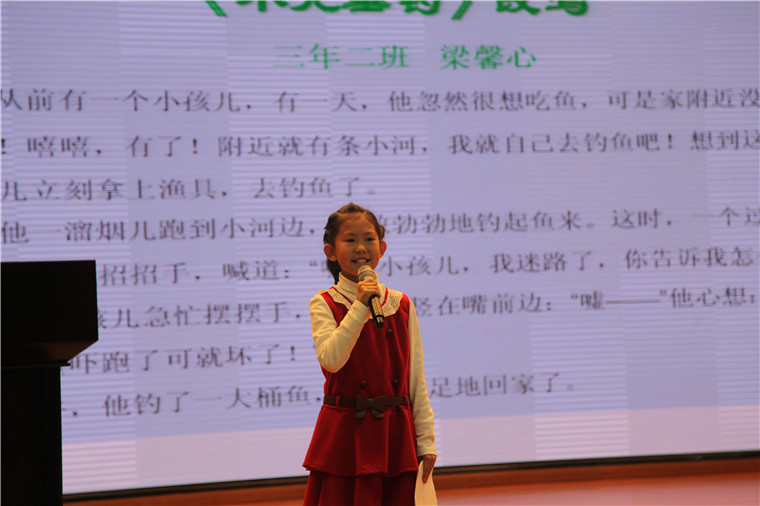 三年二班 梁馨心
从前有一个小孩儿，有一天，他忽然很想吃鱼，可是家附近没
！嘻嘻，有了！附近就有条小河，我就自己去钓鱼吧！想到这
儿立刻拿上渔具，去钓鱼了。
他一溜烟儿跑到小河边， 勃勃地钓起鱼来。这时，一个过
招招手，喊道：“ 小孩儿，我迷路了，你告诉我怎
孩儿急忙摆摆手， 竖在嘴前边：“嘘——”他心想：
吓跑了可就坏了！
，他钓了一大桶鱼， 足地回家了。